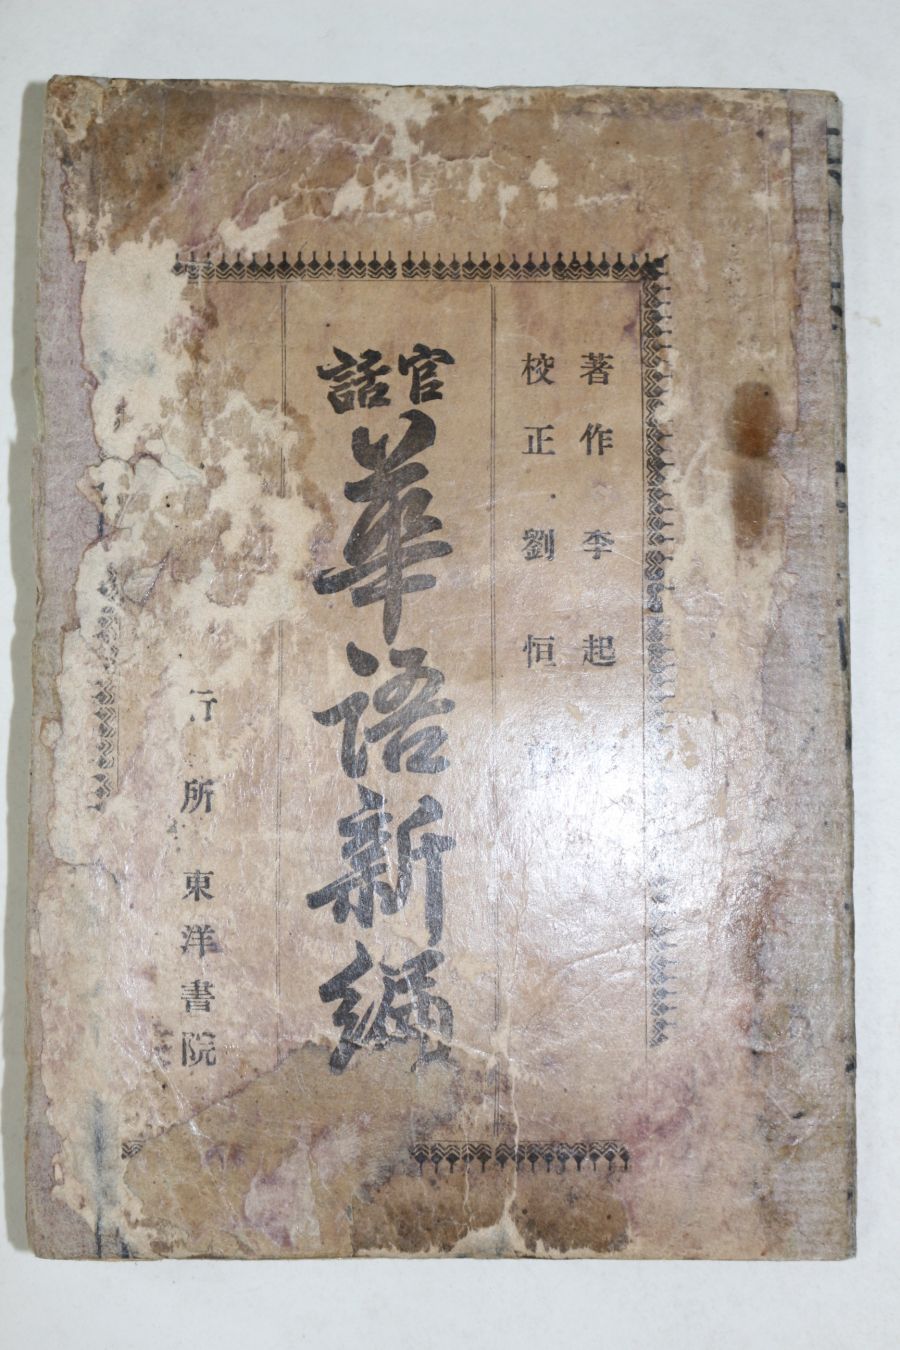 著作 李起
校正 劉恒
官話
華語新編
行所 東洋書院